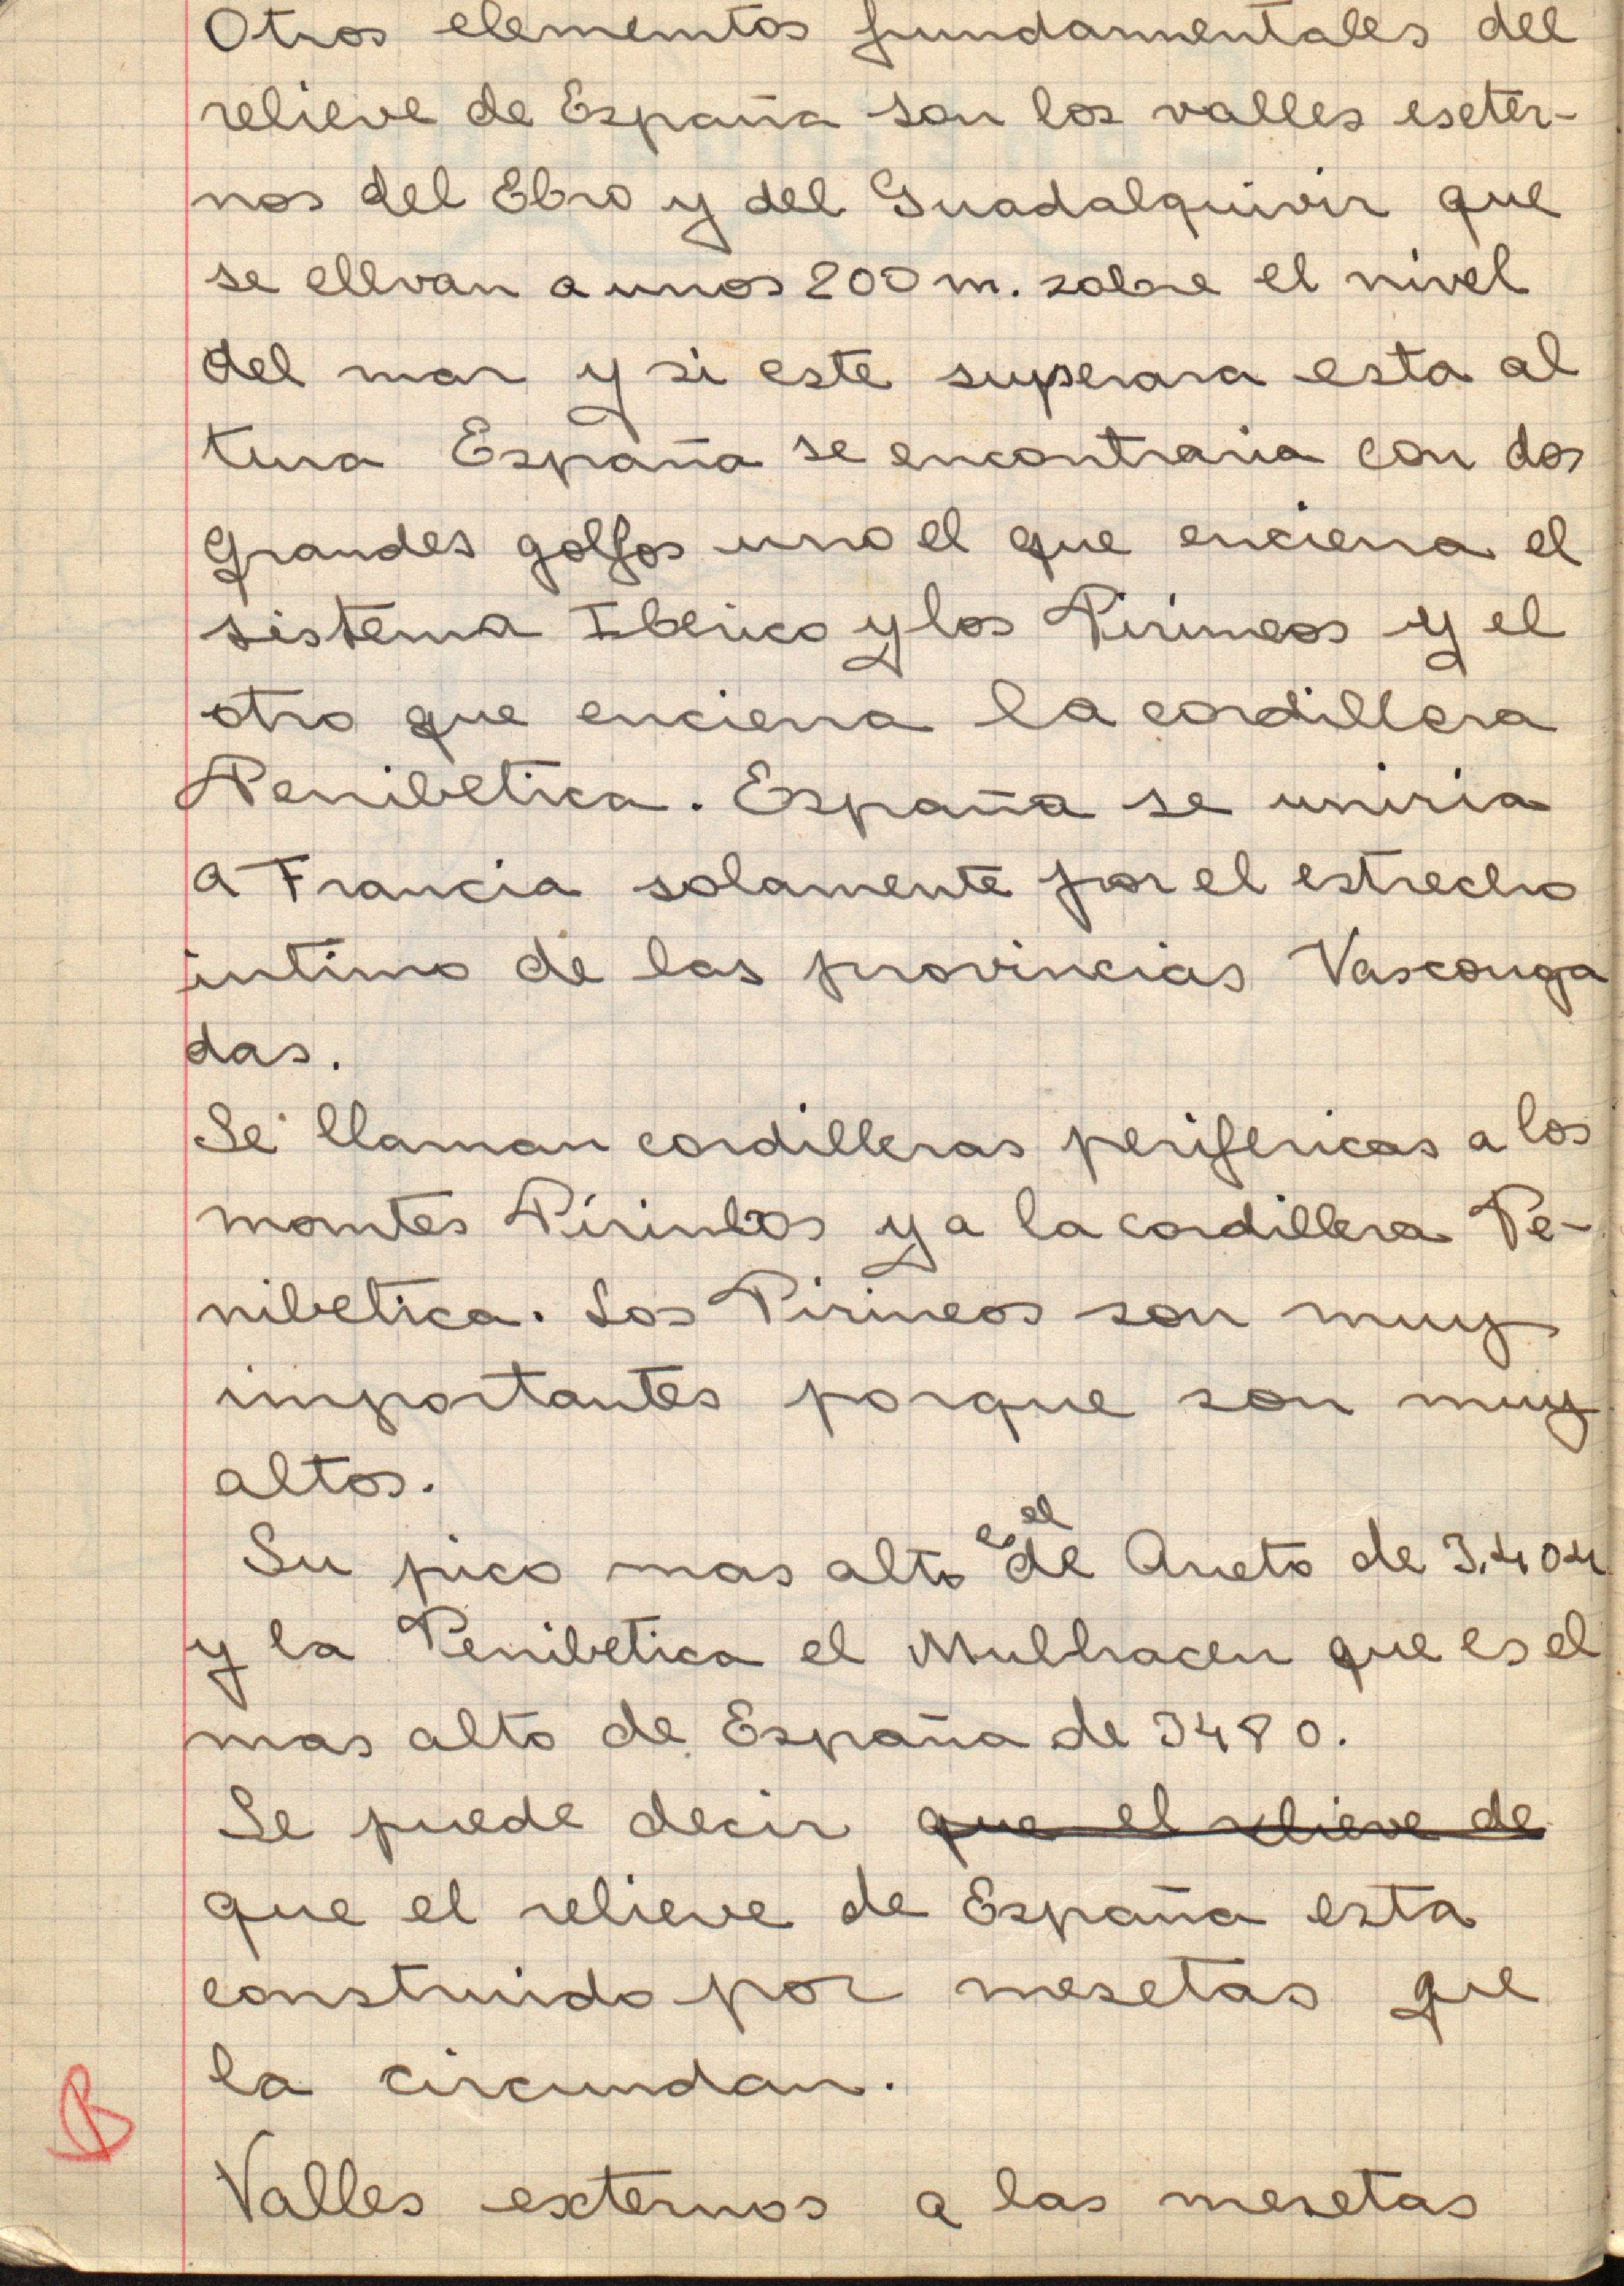 Otros elementos fundamentales del
relieve de España son los valles eseter-
nos del Ebro y del Guadalquivir que
se ellvan a unos 200 m. sobre el nivel
del mar y si este superara esta al
tura España se encontraria con dos
grandes golfos uno el que encierra el
sistema Iberico y los Pirineos y el
otro que encierra la cordillera
Penibetica. España se uniria
a Francia solamente por el estrecho
intimo de las provincias Vasconga
das.
Se llaman cordilleras perifericas a los
montes Pirineos y a la cordillera Pe-
nibetica. Los Pirineos son muy
importantes porque son muy
altos.
Su pico mas alto es el de Aneto de 3.404
y la Penibetica el Mulhacen que es el
mas alto de España de 3480.
Se puede decir que el relieve de
que el relieve de España esta
construido por mesetas que
la circundan.
B
Valles externos a las mesetas